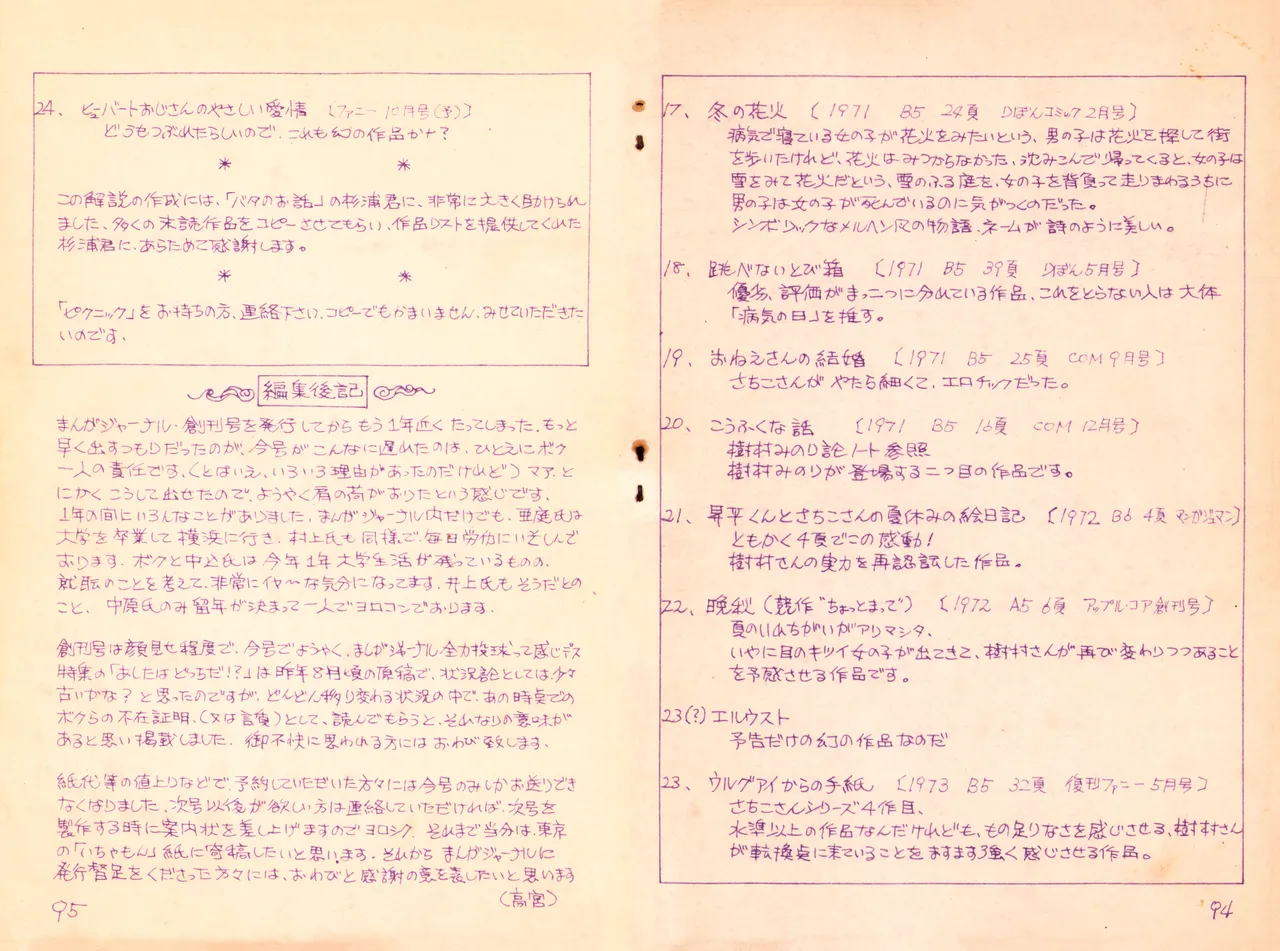 17、 冬の花火 〔1971 B5 24頁 りぼんコミック2月号〕
病気で寝ている女の子が花火をみたいという、男の子は花火を探して街
を歩いたけれど、花火はみつからなかった、沈みこんで帰ってくると、女の子は
雪をみて花火だという、雪のふる庭を、女の子を背負って走りまわるうちに
男の子は女の子が死んでいるのに気がつくのだった。
シンボリックなメルヘン風の物語、ネームが詩のように美しい。
18、 跳べないとび箱 〔1971 B5 39頁 りぼん5月号〕
優劣、評価がまっ二つに分れている作品、これをとらない人は大体
「病気の日」を推す。
19、 おねえさんの結婚 〔1971 B5 25頁 COM9月号〕
さちこさんがやたら細くて、エロチックだった。
20、 こうふくな話 〔1971 B5 16頁 COM12月号〕
樹村みのり論ノート参照
樹村みのりが登場する二つ目の作品です。
21、 昇平くんとさちこさんの夏休みの絵日記 〔1972 B6 4頁 マンガジュマン〕
ともかく4頁でこの感動!
樹村さんの実力を再認識した作品。
22、 晩秋(競作“ちょっとまって”) 〔1972 A5 6頁 アップル・コア創刊号〕
夏のいれちがいがアリマシタ、
いやに目のキツイ女の子が出てきて、樹村さんが再び変わりつつあること
を予感させる作品です。
23(?) エルウスト
予告だけの幻の作品なのだ
23、 ウルグアイからの手紙 〔1973 B5 32頁 復刊ファニー5月号〕
さちこさんシリーズ4作目、
水準以上の作品なんだけれども、もの足りなさを感じさせる、樹村さん
が転換点に来ていることをますます強く感じさせる作品。
94
24、 ヒューバートおじさんのやさしい愛情 〔ファニー10月号(予)〕
どうもつぶれたらしいので、これも幻の作品かナ?
* *
この解説の作成には、「バタのお話」の杉浦君に、非常に大きく助けられ
ました、多くの未読作品をコピーさせてもらい、作品リストを提供してくれた
杉浦君に、あらためて感謝します。
* *
「ピクニック」をお持ちの方、連絡下さい、コピーでもかまいません、みせていただきた
いのです、
編集後記
まんがジャーナル・創刊号を発行してからもう1年近くたってしまった、もっと
早く出すつもりだったのが、今号がこんなに遅れたのは、ひとえにボク
一人の責任です、(とはいえ、いろいろ理由があったのだけれど)マア、と
にかくこうして出せたので、ようやく肩の荷がおりたという感じです、
1年の間にいろんなことがありました、まんがジャーナル内だけでも、亜庭氏は
大学を卒業して横浜に行き、村上氏も同様で、毎日労働にいそしんで
おります、ボクと中込氏は今年1年大学生活が残っているものの、
就職のことを考えて、非常にイヤ〜な気分になってます、井上氏もそうだとの
こと、中原氏のみ留年が決まって一人でヨロコンでおります、
創刊号は顔見せ程度で、今号でようやく、まんがジャーナル全力投球って感じデス
特集の「あしたはどっちだ!?」は昨年8月頃の原稿で、状況論としては少々
古いかな?と思ったのですが、どんどん移り変わる状況の中で、あの時点での
ボクらの不在証明、(又は言質)として、読んでもらうと、それなりの意味が
あると思い掲載しました、御不快に思われる方にはおわび致します、
紙代等の値上りなどで、予約していただいた方々には今号のみしかお送りでき
なくなりました、次号以後が欲しい方は連絡していただければ、次号を
製作する時に案内状を差し上げますのでヨロシク、それまで当分は、東京
の「いちゃもん」紙に寄稿したいと思います、それからまんがジャーナルに
発行督促をくださった方々には、おわびと感謝の意を表したいと思います
(高宮)
95